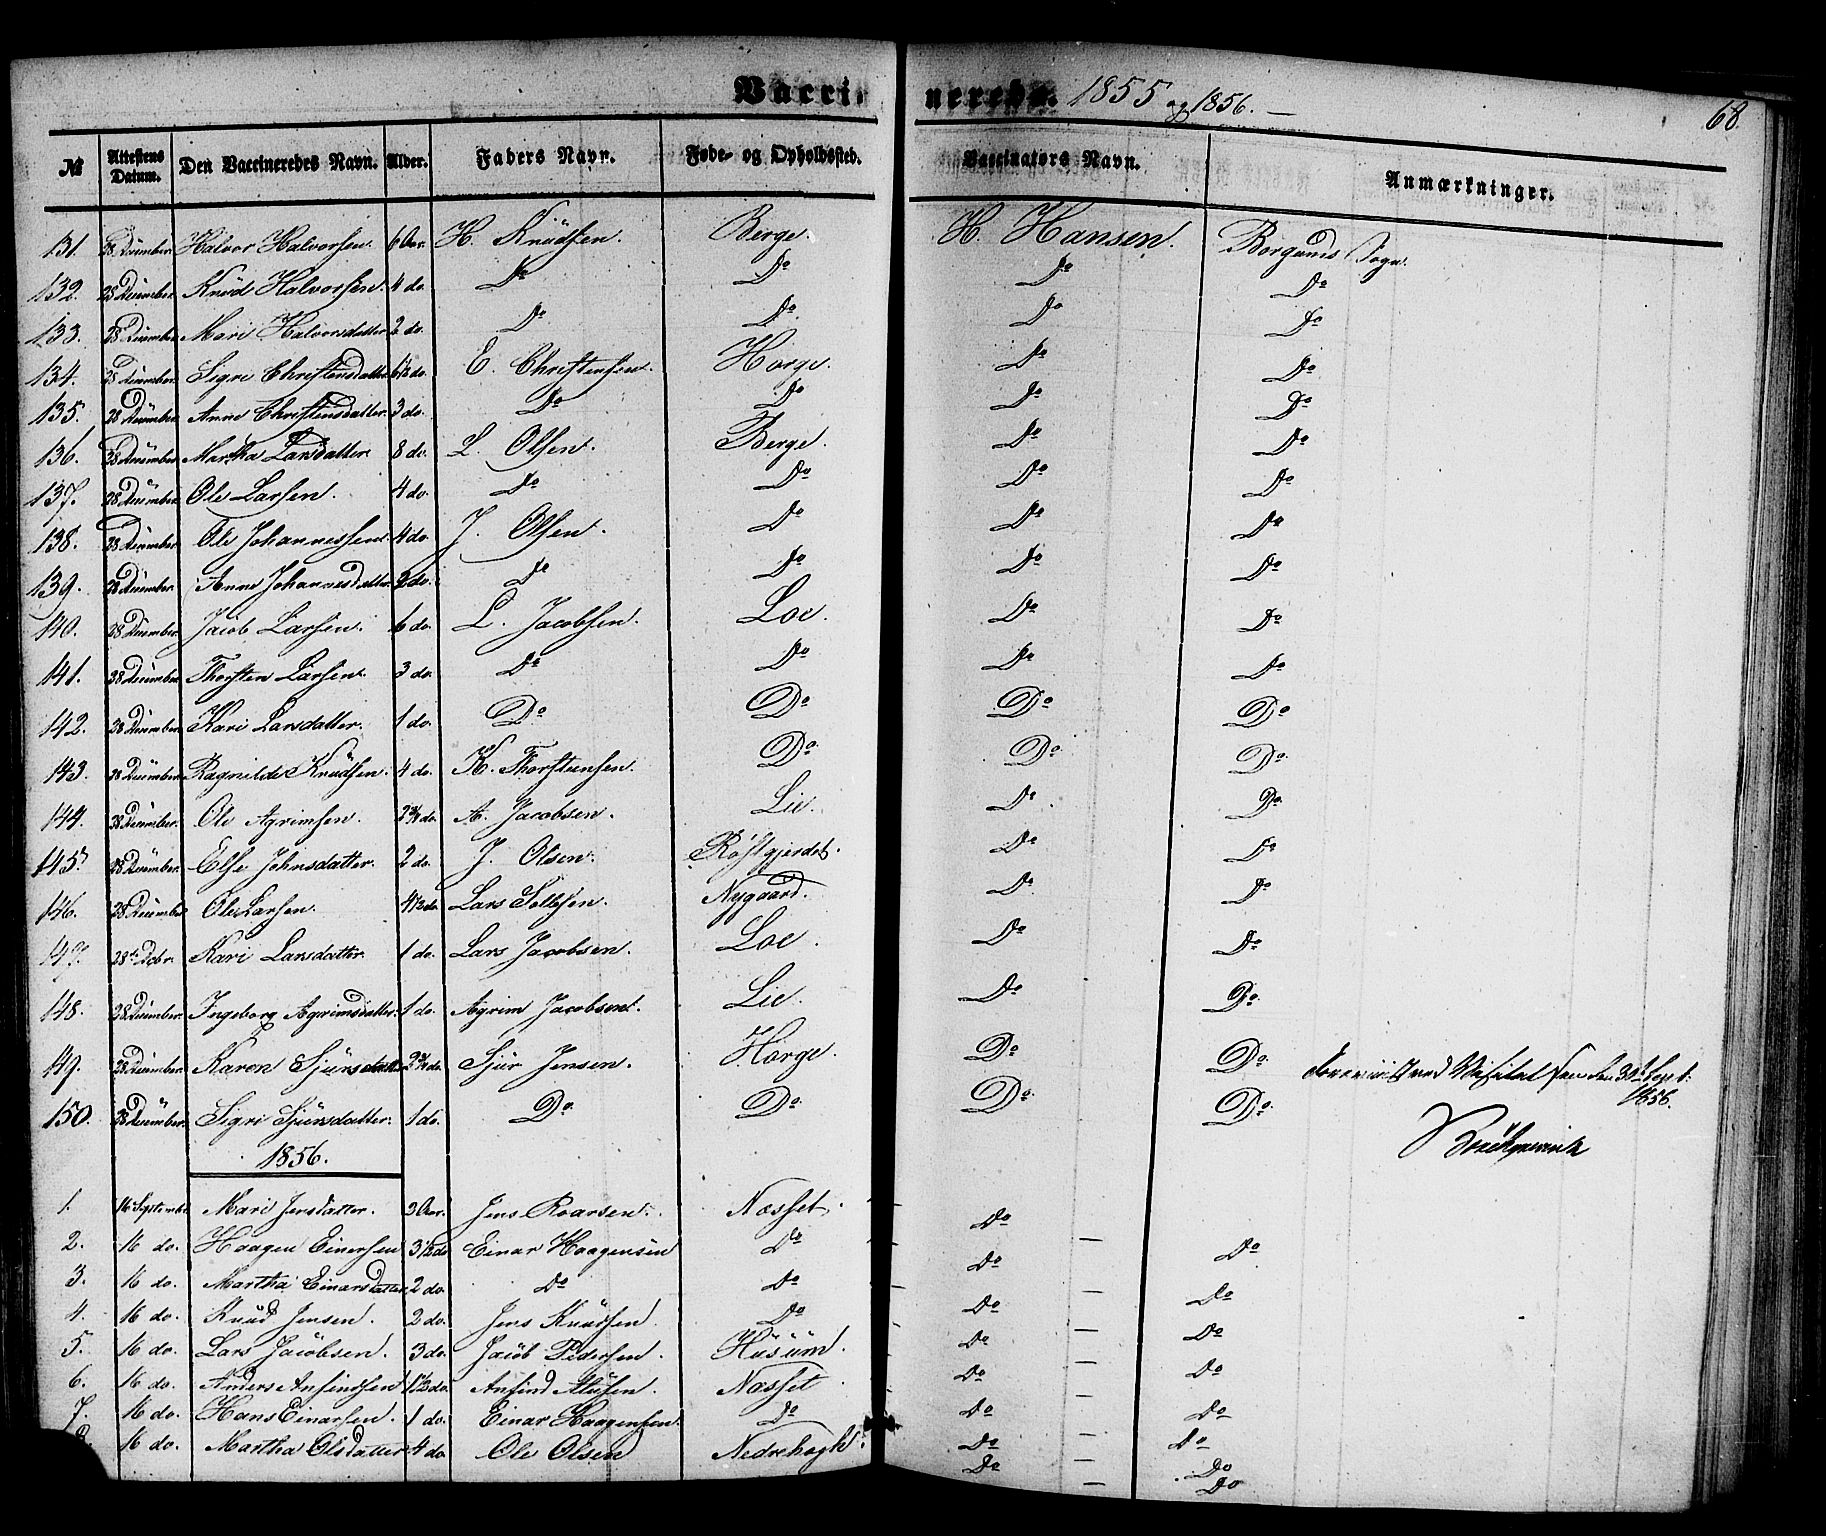 Vaccinerede. 1855 og 1856. — 68.
№ Attestens Datum. Den Vaccineredes Navn. Alder. Faders Navn. Føde- og Opholdssted. Vaccinators Navn. Anmærkninger.
131. 28 December Halvor Halvorsen. 6 Aar. H. Knudsen. Berge. H. Hansen. Borgunds Sogn.
132. 28 December Knud Halvorsen. 4 do. Do Do Do Do
133. 28 December Mari Halvorsdatter 2 do. Do Do. Do Do
134. 28 December Sigri Christensdatter 6½ do. E. Christensen. Horge. Do Do
135. 28 December Anne Christensdatter 3 do. Do Do Do Do
136. 28 December Martha Larsdatter 8 do. L. Olsen. Berge. Do Do
137. 28 December Ole Larsen. 4 do. Do Do Do Do
138. 28 December Ole Johannessen. 4 do. J. Olsen. Do Do Do
139. 28 December Anne Johannesdatter 2 do. Do Do Do Do
140. 28 December Jacob Larsen. 6 do. L. Jacobsen. Loe. Do Do
141. 28 December Thorsten Larsen. 3 do. Do Do Do Do
142. 28 December Kari Larsdatter. 1 do. Do Do Do Do
143. 28 December Ragnilde Knudsen. 4 do. K. Thorstensen. Do. Do. Do.
144. 28 December. Ole Agrimsen. 2¾ do. A. Jacobsen. Lie. Do Do.
145. 28 December Else Johnsdatter. 2 do. J. Olsen. Røstgjerdet. Do Do
146. 28 December Ole Larsen. 4½ do. Lars Tollesen. Nygaard. Do Do
147. 28de Dcbr. Kari Larsdatter. 1 do. Lars Jacobsen. Loe. Do Do
148. 28 December. Ingeborg Agrimsdatter. 1 do. Agrim Jacobsen. Lie. Do Do.
149. 28 December Karen Sjursdatter 2¾ do. Sjur Jensen. Horge. Do Do. Visitatsen den 30te Sept. 1856.
150. 28 December Sigri Sjursdatter. 1 do. Do Do. Do. Do.
1856.
1. 16 September Mari Jensdatter. 2 Aar. Jens Roarsen. Næsset. Do
2. 16 do. Haagen Einersen 3½ do Einar Haagensen Do Do — Do
3. 16 do. Martha Einarsdatter 2 do. Do Do Do Do
4. 16 do. Knud Jensen. 2 do. Jens Knudsen. Do Do — Do
5. 16 do. Lars Jacobsen. 3 do. Jacob Pedersen. Husum. Do — Do
6. 16 do. Anders Anfindsen 1½ do. Anfind Næsset Do — Do
7. 16 do. Hans Einarsen. 1 do. Einar Haagensen. Do Do — Do
8. 16 do. Martha Olsdatter 4 do. Ole Olsen Nedrehagh. Do — Do
Do — Do